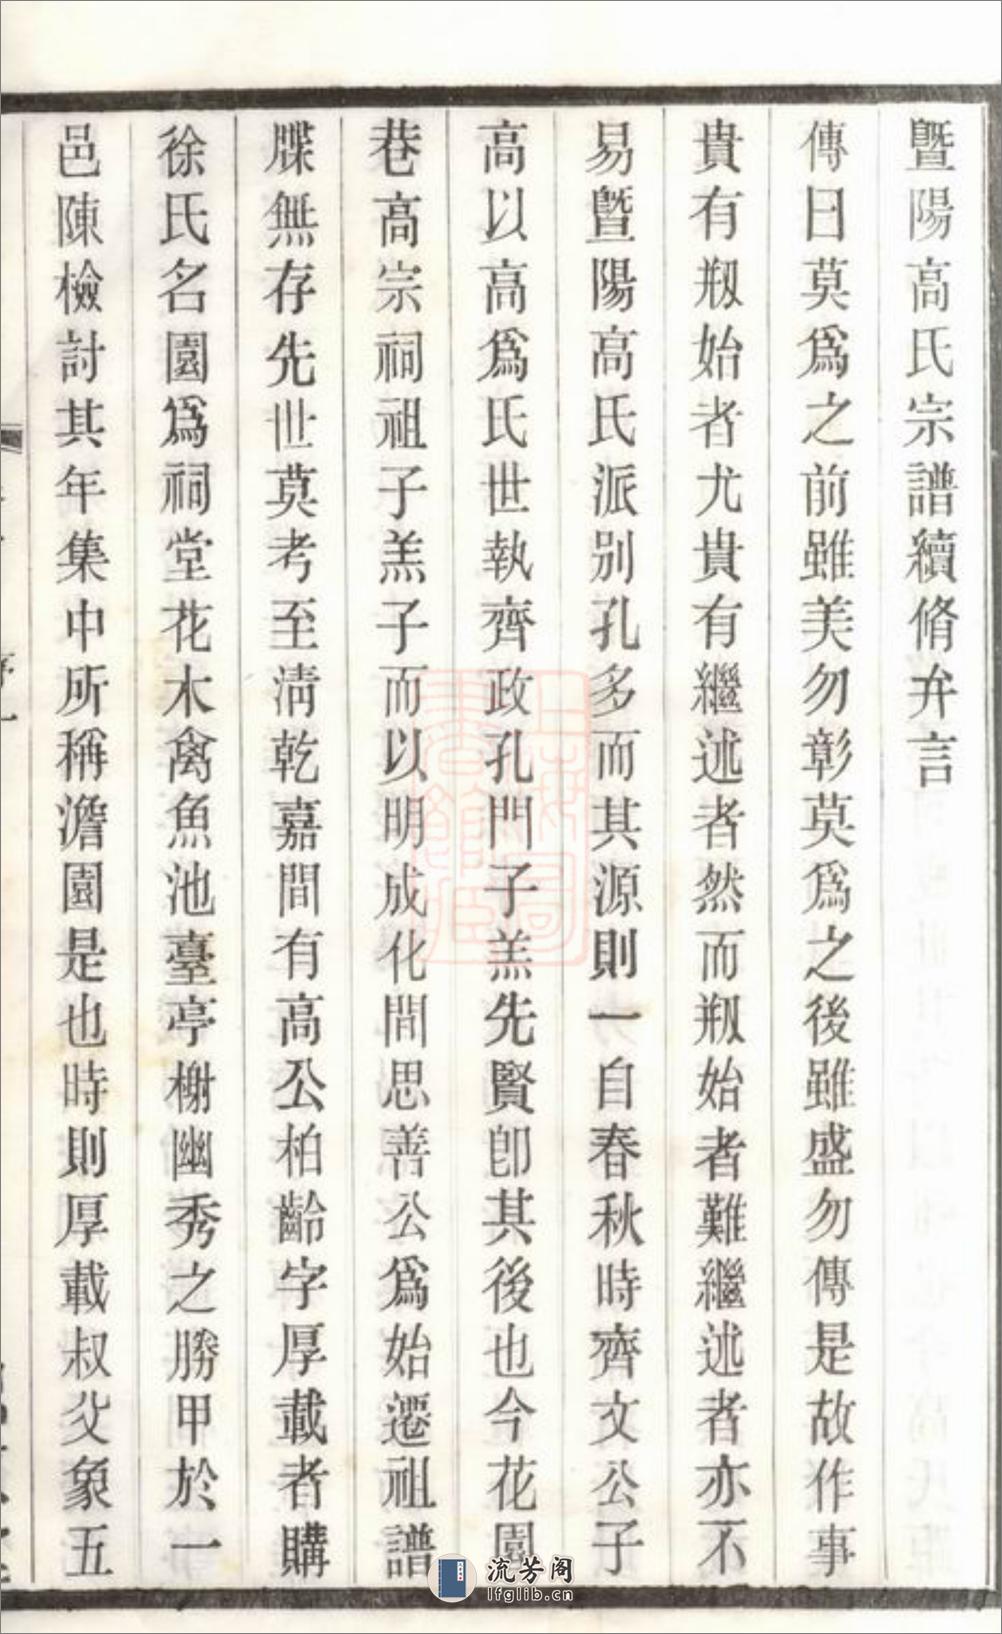 暨陽高氏宗譜續脩弁言
傳曰莫爲之前雖美勿彰莫爲之後雖盛勿傳是故作事
貴有剏始者尤貴有繼述者然而剏始者難繼述者亦不
易暨陽高氏派别孔多而其源則一自春秋時齊文公子
高以高爲氏世執齊政孔門子羔先賢卽其後也今花園
巷高宗祠祖子羔子而以明成化間思善公爲始遷祖譜
牒無存先世莫考至淸乾嘉間有高公柏齡字厚載者購
徐氏名園爲祠堂花木禽魚池臺亭榭幽秀之勝甲於一
邑陳檢討其年集中所稱澹園是也時則厚載叔父象五
流芳阁
lfglib.cn